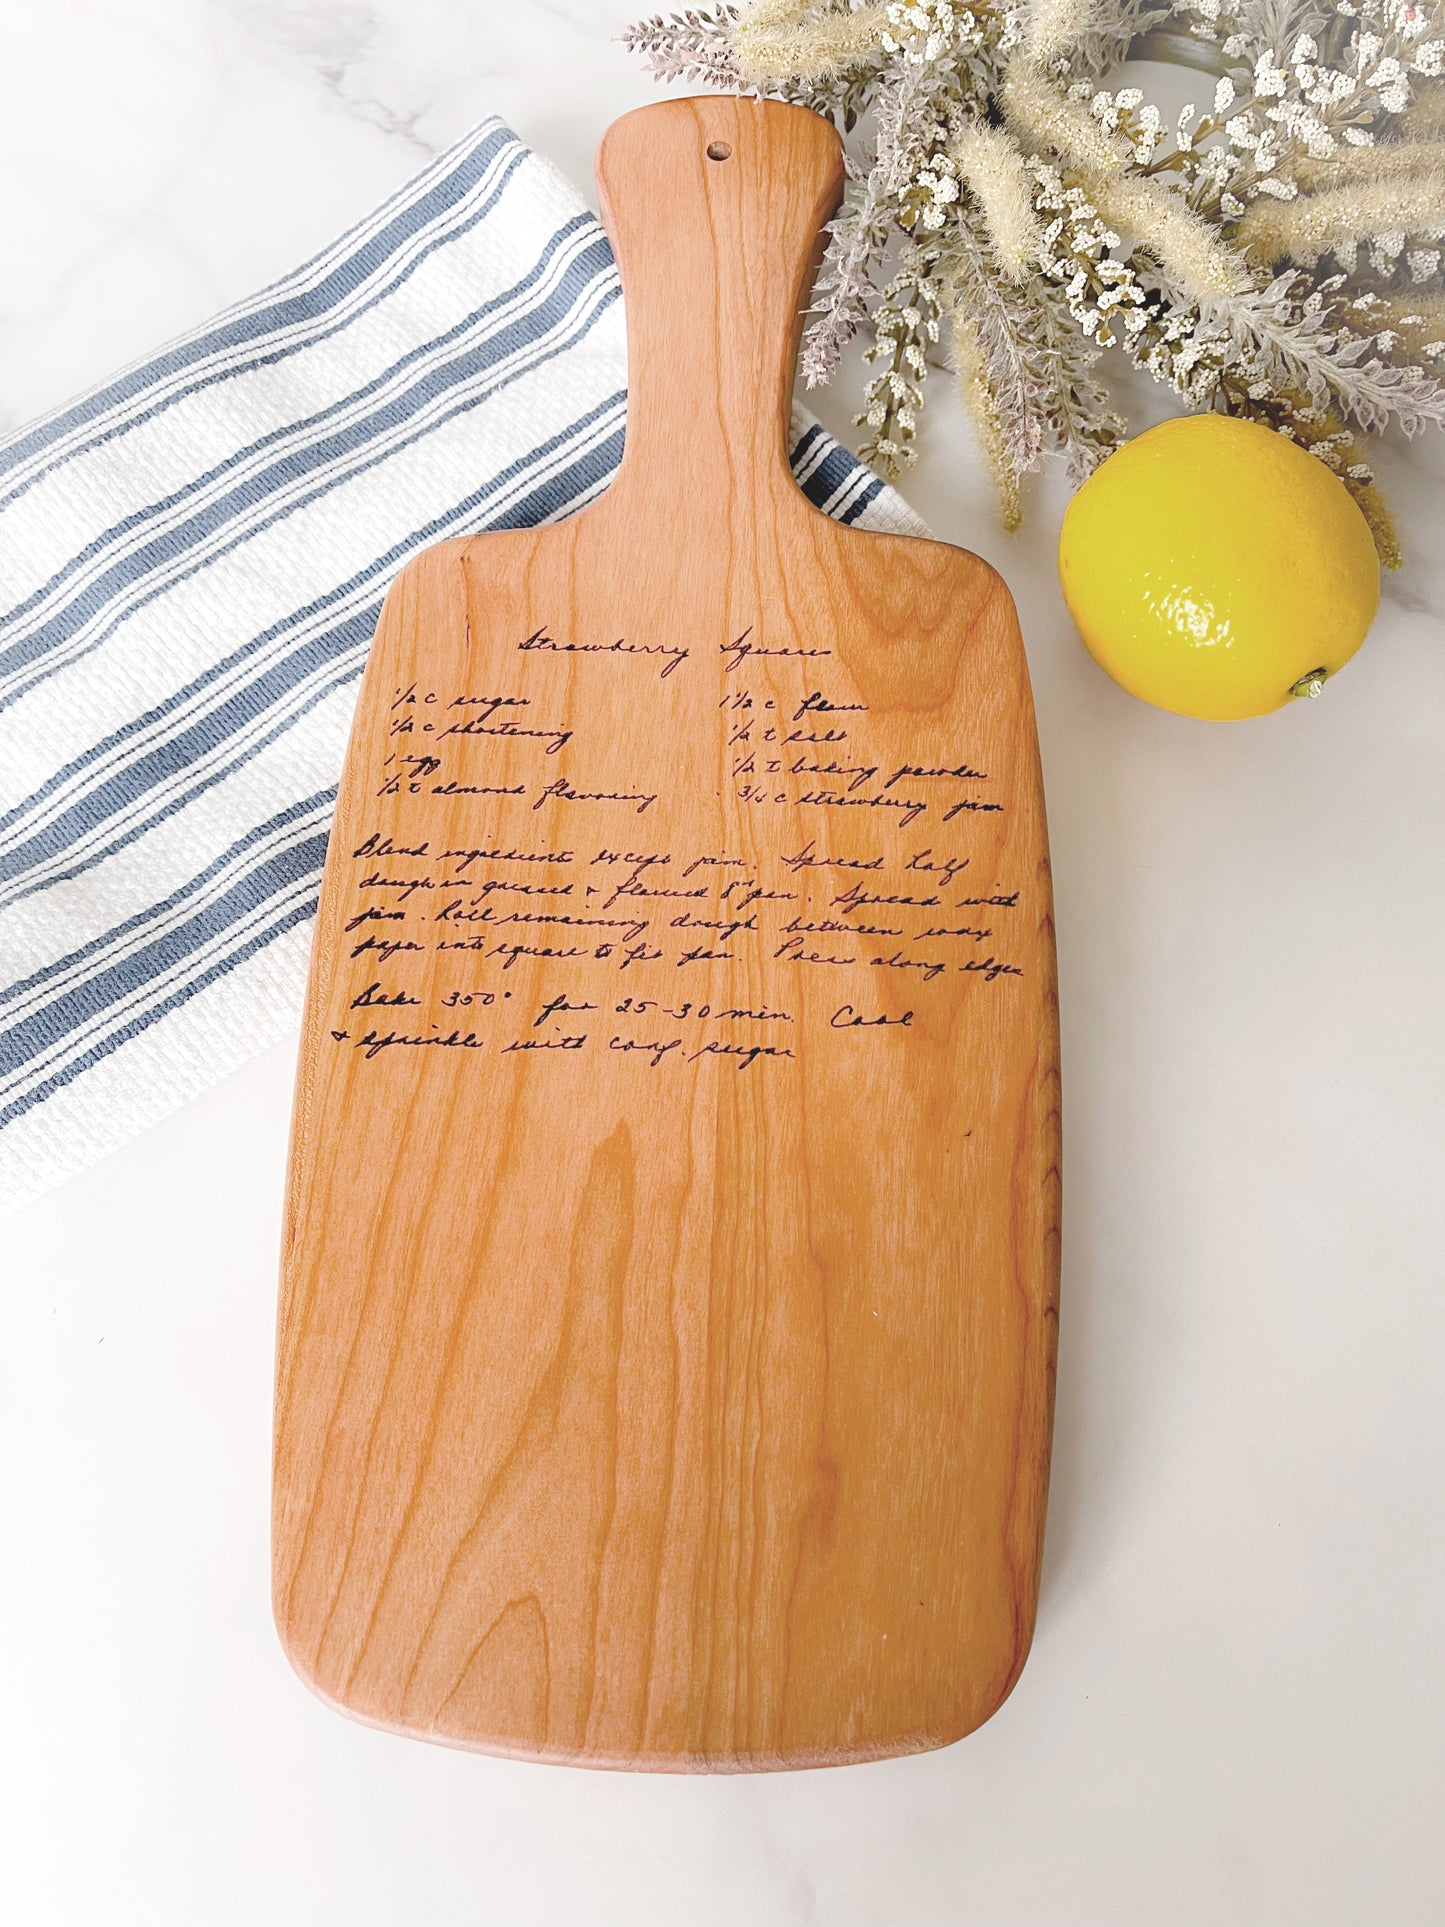 Strawberry Squares
1/2 c sugar
1/2 c shortening
1 egg
1/2 t almond flavoring
1 1/2 c flour
1/2 t salt
1/2 t baking powder
3/4 c strawberry jam
Blend ingredients except jam. Spread half
dough in greased & floured 8" pan. Spread with
jam. Roll remaining dough between wax
paper into square to fit pan. Press along edges
Bake 350° for 25-30 min. Cool
& sprinkle with conf. sugar